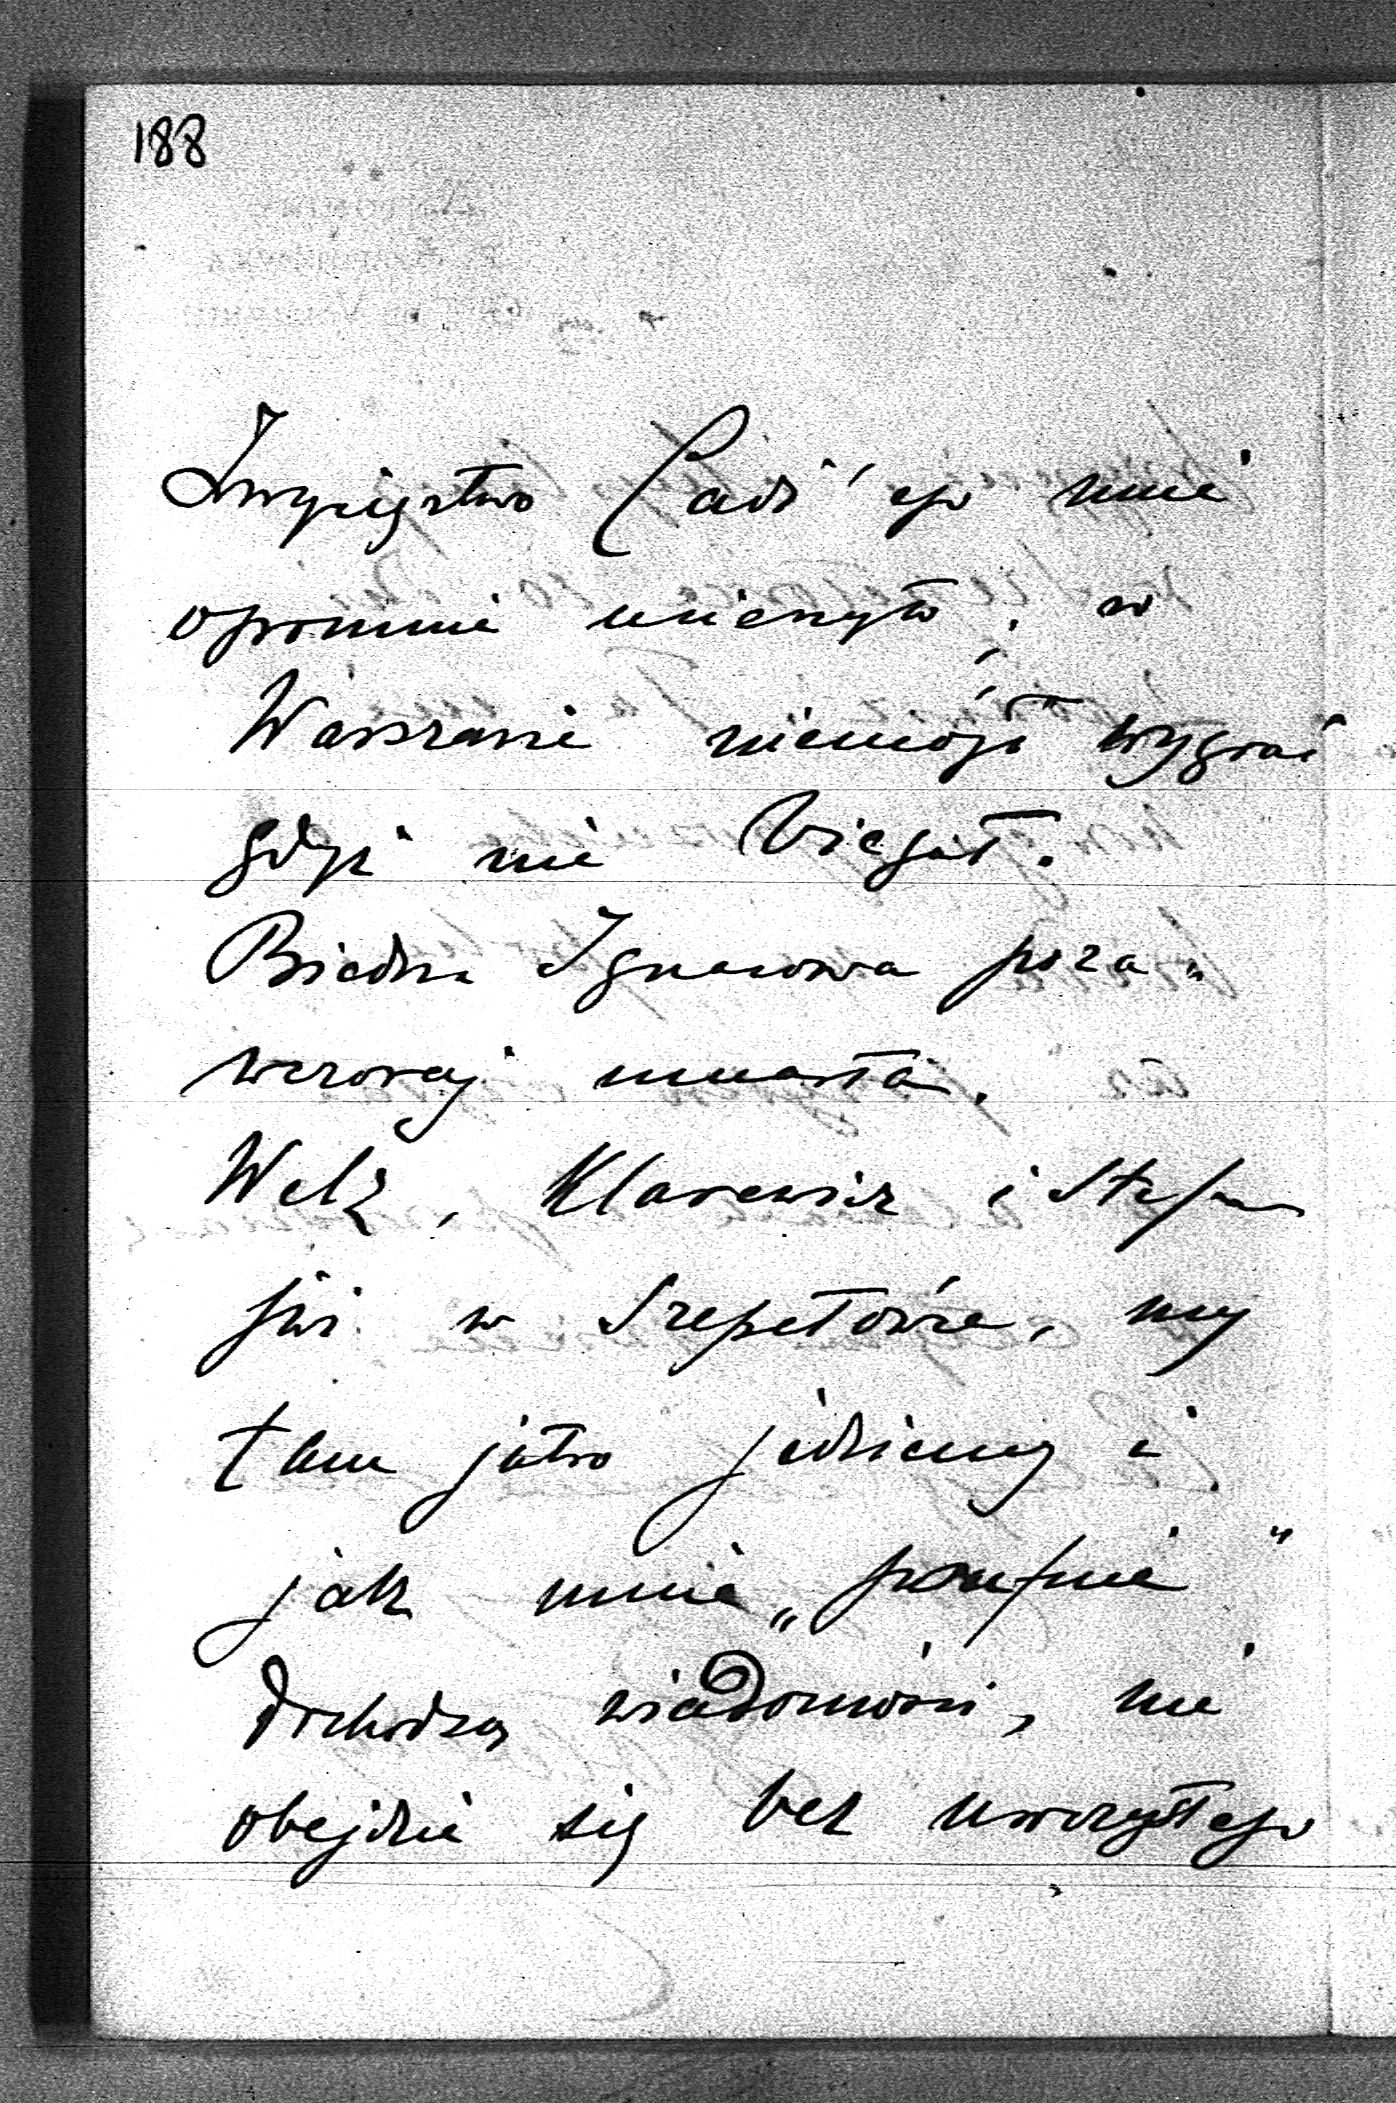 188
Zwycięstwo Cadi'ego mnie
ogromnie ucieszyło, w
Warszawie niemógł wygrać
gdyż nie biegał.
Biedna Ignacowa poza„
wczoraj umarła.
Welz, Klarewicz i Stefan
są w Szepetówce, my
tam jutro jedziemy i
jak mnie „poufnie"
dochodzą wiadomości, nie
obejdzie się bez uroczystego